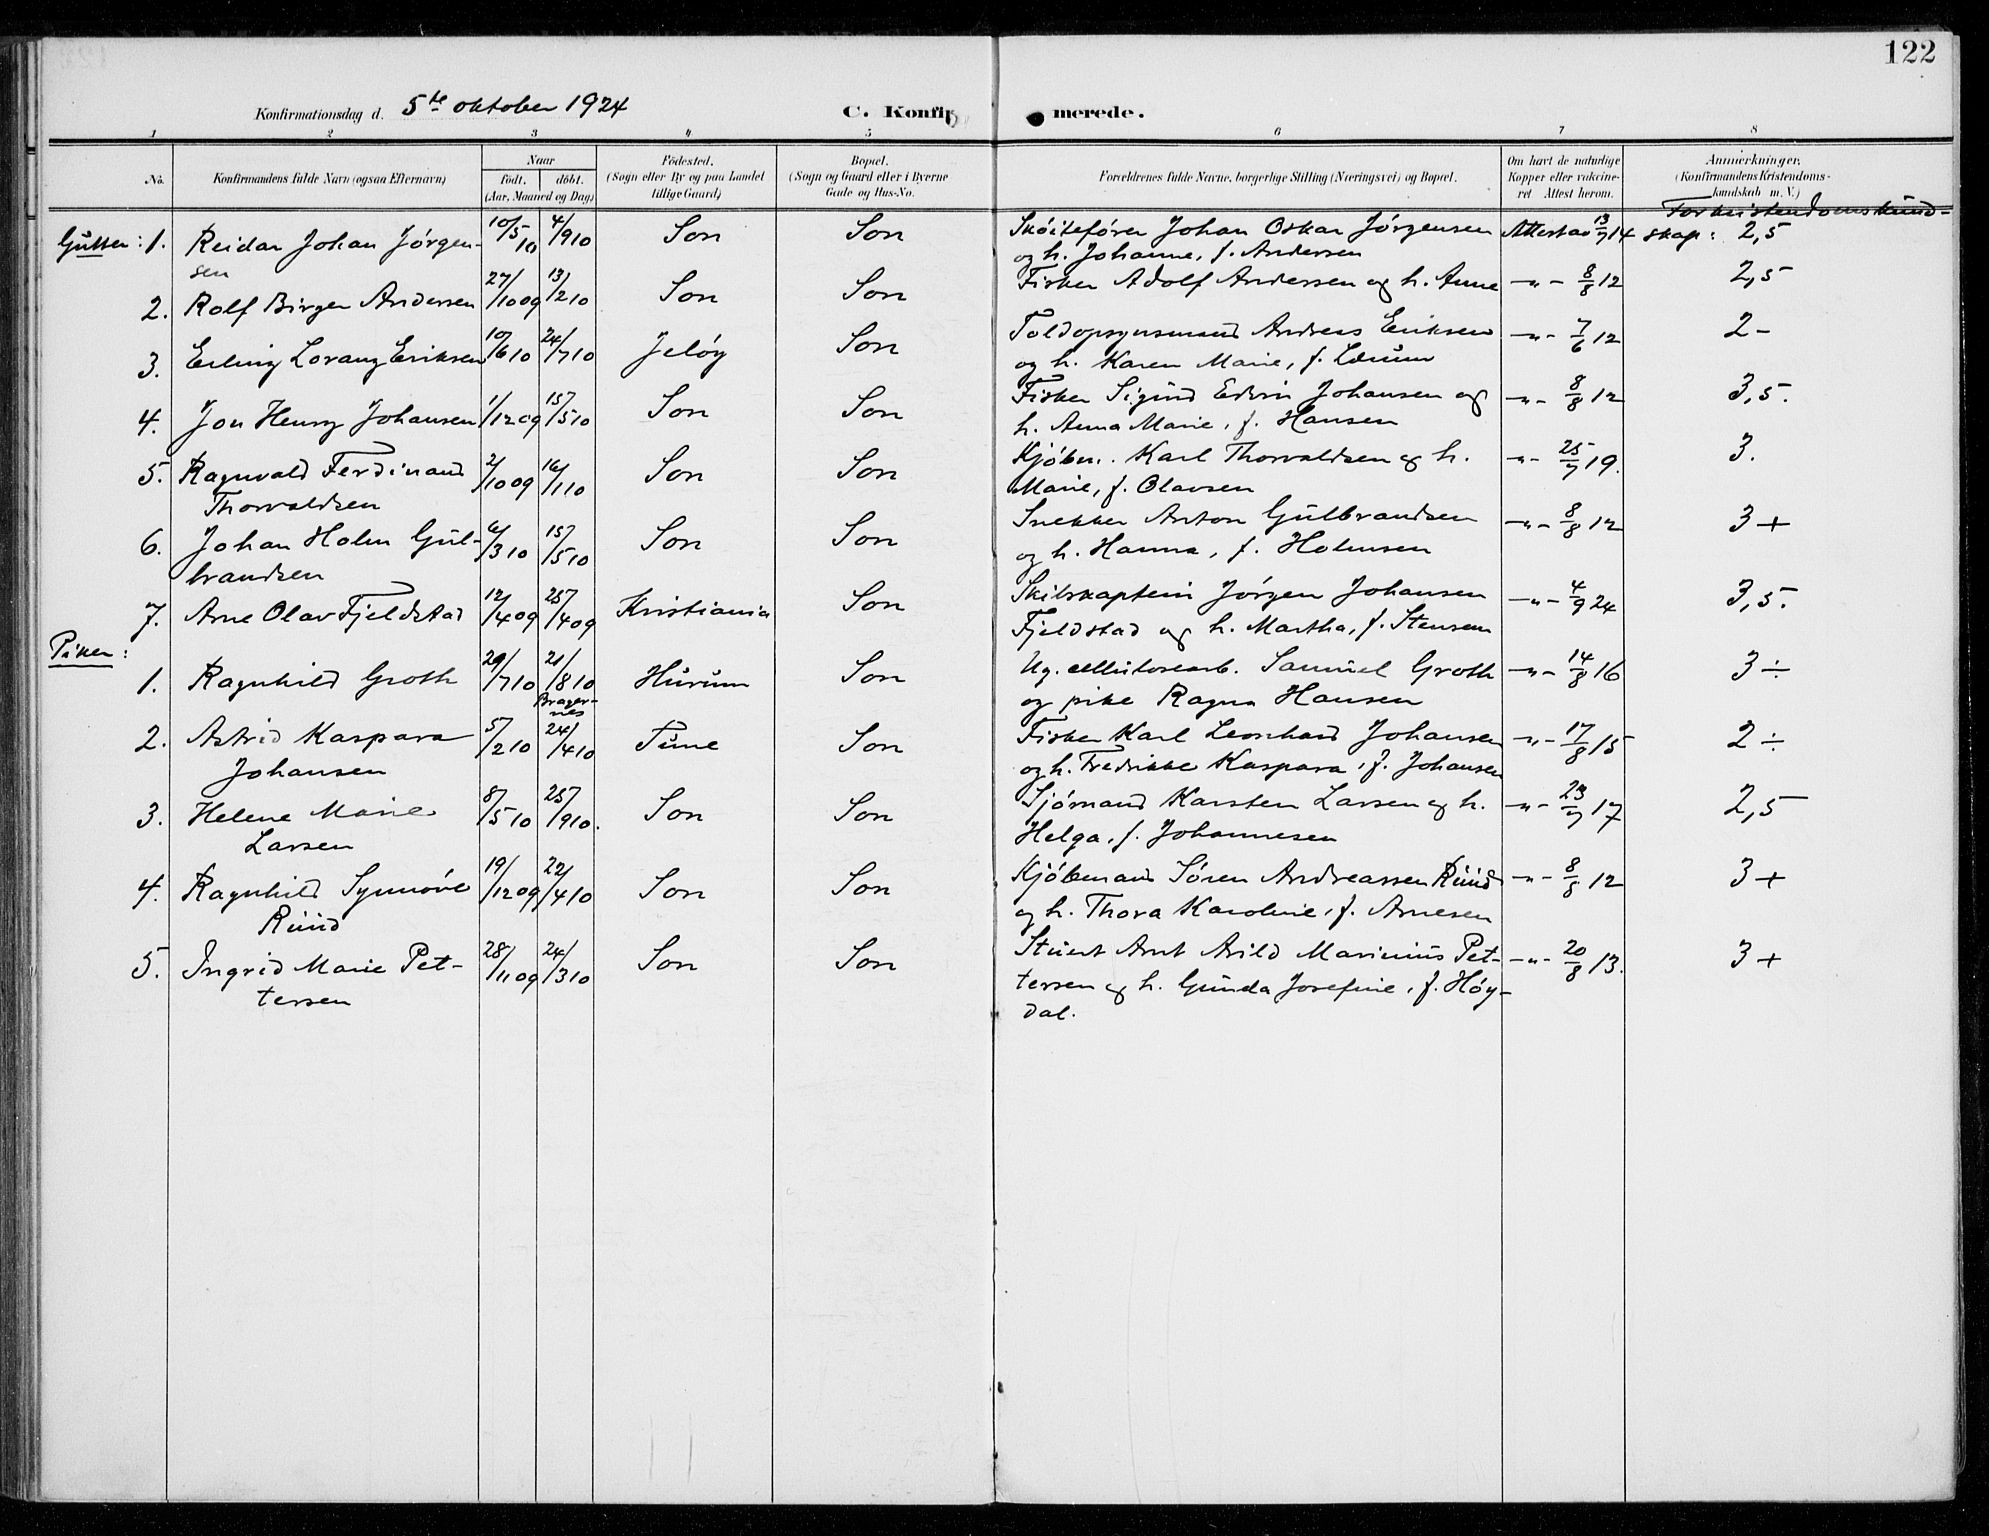 122
Konfirmationsdag d. 5te oktober 1924 C. Konfir merede.
1 2 3 4 5 6 7 8
No. Konfirmandens fulde Navn (ogsaa Efternavn) Naar Födested. Bopæl. Forældrenes fulde Navne, borgerlige Stilling (Næringsvei) og Bopæl. Om havt de naturlige Anmærkninger.
födt. döbt. (Sogn eller By og paa Landet (Sogn og Gaard eller i Byerne Kopper eller vakcine- (Konfirmandens Kristendoms-
(Aar, Maaned og Dag) tillige Gaard) Gade og Hus-No. ret Attest herom. kundskab m. V.)
For kristendomskund-
Gutter: 1. Reidar Johan Jörgen- 10/5 10 4/9 10 Son Son Sköitefører Johan Oskar Jörgensen Attest av 13/7 14 skap: 2,5
sen og h. Johanne, f. Andersen
2. Rolf Birger Andersen 27/10 09 13/2 10 Son Son Fisker Adolf Andersen og h. Anne -"- 8/8 12 2,5
3. Erling Lorang Eriksen 10/6 10 24/7 10 Jelöy Son Toldopsynsmand Andreas Eriksen -"- 7/6 12 2-
og h. Karen Marie, f. Lærum
4. Jon Henry Johansen 1/12 09 15/5 10 Son Son Fisker Sigurd Edvin Johansen og -"- 8/8 12 3,5.
h. Anna Marie, f. Hansen
5. Ragnvald Ferdinand 2/10 09 16/1 10 Son Son Kjöbm. Karl Thorvaldsen og h. -"- 25/7 19. 3.
Thorvaldsen Marie, f. Olavsen
6. Johan Holm Gul- 6/3 10 15/5 10 Son Son Snekker Anton Gulbrandsen -"- 8/8 12 3+
brandsen og h. Hanna, f. Holmsen
7. Arne Olav Fjeldstad 12/4 09 25/4 09 Kristiania Son Skibskaptein Jörgen Johansen -"- 4/9 24 3,5.
Fjeldstad og h. Martha, f. Stensen
Piker:
1. Ragnhild Groth 29/7 10 21/8 10 Hurum Son Ug. cellulosearb. Samuel Groth -"- 14/8 16 3÷
Brager-
nes og pike Ragna Hansen
2. Astrid Kaspara 5/2 10 24/4 10 Tune Son Fisker Karl Leonhard Johansen -"- 17/8 15 2÷
Johansen og h. Fredrikke Kaspara, f. Johansen
3. Helene Marie 8/5 10 25/9 10. Son Son Sjömand Karsten Larsen og h. -"- 23/7 17 2,5
Larsen Helga, f. Johannesen
4. Ragnhild Synnöve 19/12 09 22/4 10 Son Son Kjöbmand Sören Andreassen Ruud -"- 8/8 12 3+
Ruud og h. Thora Karoline, f. Arnesen
5. Ingrid Marie Pet- 28/11 09 24/3 10 Son Son Stuert Arnt Arild Marinius Pet- -"- 20/8 13. 3+
tersen tersen og h. Gunda Josefine, f. Höy-
dal.